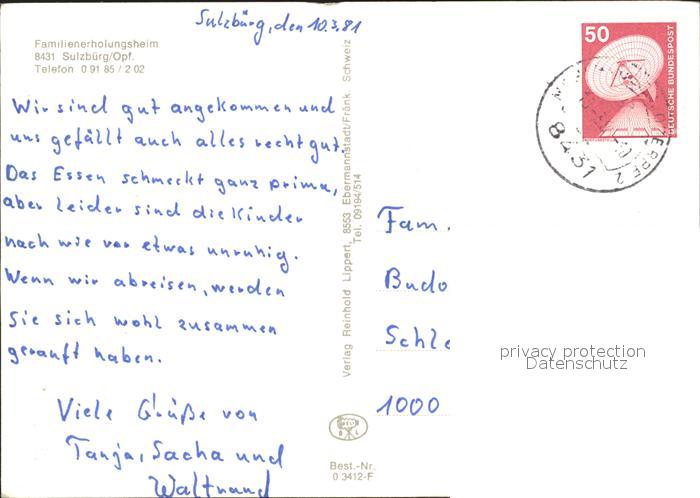 Sulzbürg, den 10.3.81
Familienerholungsheim
8431 Sulzbürg/Opf.
Telefon 0 91 85 / 2 02
Wir sind gut angekommen und
uns gefällt auch alles recht gut.
Das Essen schmeckt ganz prima,
aber leider sind die Kinder
nach wie vor etwas unruhig.
Wenn wir abreisen, werden
sie sich wohl zusammen
gerauft haben.
Viele Grüße von
Tanja, Sacha und
Waltraud
Verlag Reinhold Lippert, 8553 Ebermannstadt/Fränk. Schweiz
Tel. 09194/514
Best.-Nr.
0 3412-F
50
DEUTSCHE BUNDESPOST
8431
2
Fam.
Budo
Schle
1000
privacy protection
Datenschutz